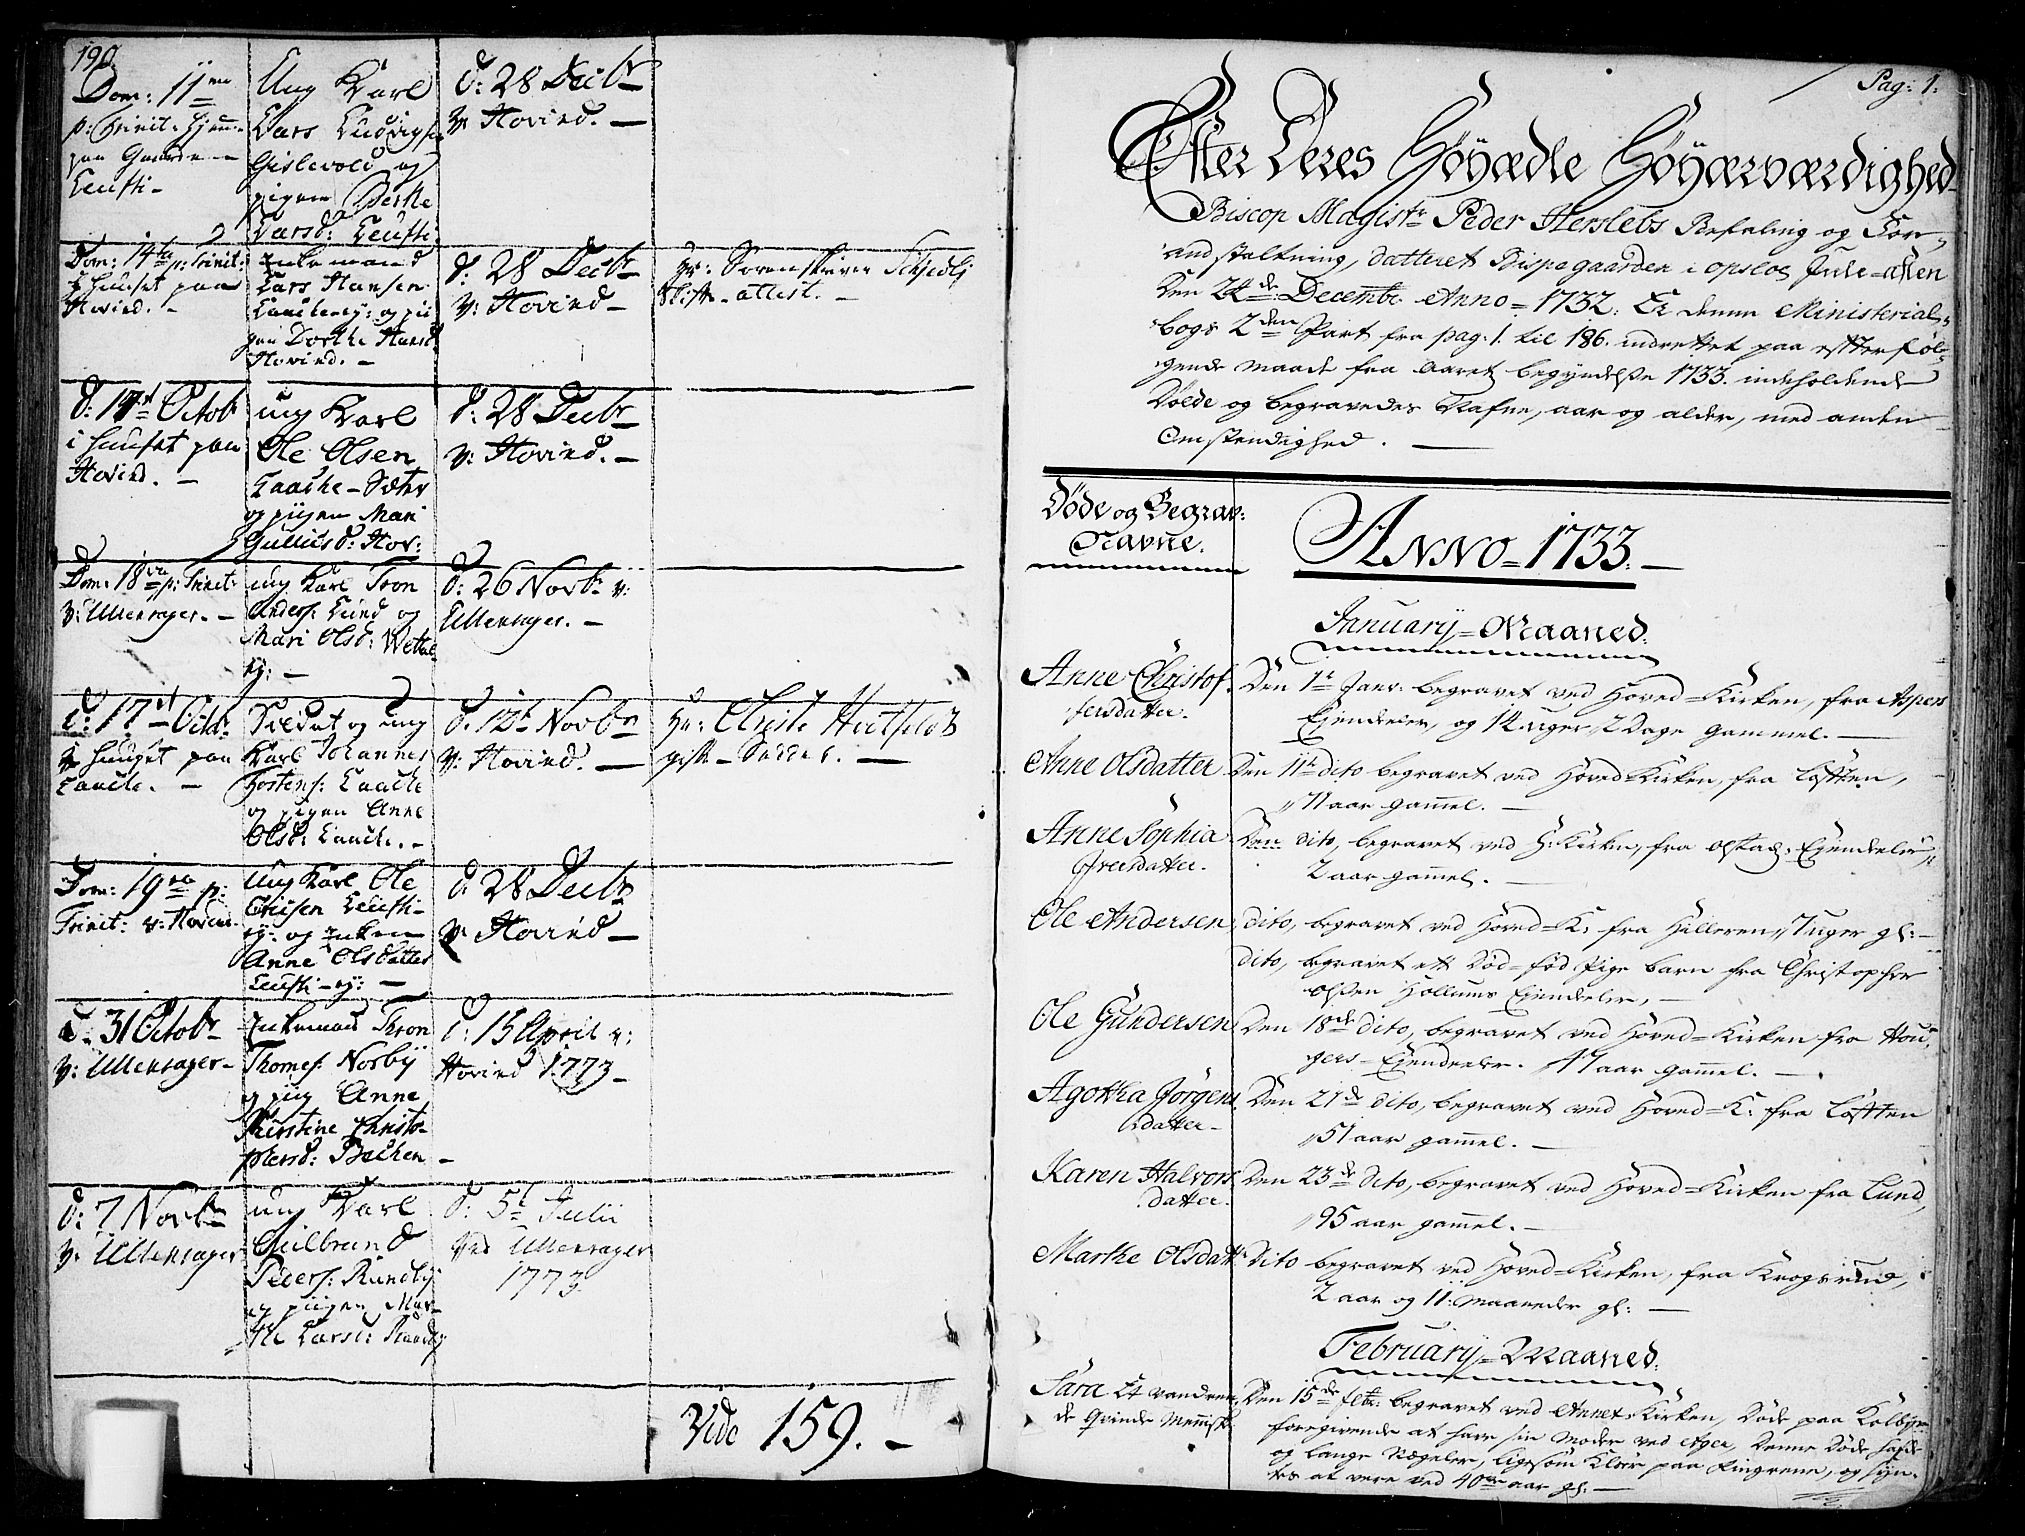 190.
Dom: 11ma
p: Trinit: hjem=
paa Gaarde
Leufti-
Ung Karl
Lars Ludvigs:
Gislevold og
pigen Berthe
Larsd: Leufti
d: 28 Decbr
v: Hovind. –
Dom: 14ta p: Trinit:
i Huuset paa
Hovind. –
Enkemand
Lars Hansen
og pi
gen Dorthe Hansd:
Hovind. –
d: 28 Decbr
v: Hovind –
Hr: Sorenskriver
Skifte-attest. –
d: 17de Octob
i Huuset paa
Hovind. –
ung Karl
Ole Olsen
Laache-Sæter
og pigen Mari
Gulliksd: Hov:
d: 28 Decbr
v: Hovind. –
Dom: 18va p: Trinit:
v: Ullensager. –
ung Karl Tron
Anders: Lund og
Mari Olsd:
ej: –
d: 26 Novbr v:
Ullensager. –
d: 17de Octbr
i Huuset paa
Laache. –
Soldat og ung
Karl Johannes
Torstens: Laache
og pigen Anne
Olsd: Laache. –
d: 12t Novbr
v: Hovind. –
Hr: Christ: Huitfeldz
gifte-Seddel. –
Dom: 19na p:
Trinit: v: Hovind.
Ung Karl Ole
Leufti-
ej: og Enken
Anne Olsdatter
Leufti-ej: –
d. 28 Decbr
v: Hovind –
d. 31 Octobr
v: Ullensager –
Enkemand Thron
Thomes: Norbÿ
og piig Anne
Kirstine Christo-
phersd: Bachen –
d: 15 April v:
Hovind 1773 –
d: 7 Novbr
v: Ullensager
ung Karl
Gulbrand
Peders: Rundbÿ
og piigen Mar-
the Larsd: Raanaas
d: 5t Julii
ved Ullensager
1773.
Vide 159. –
Pag: 1:
Efter Deres Höyædle Höyærværdighed
Biscop Magistr Peder Herslebs Befaling og For-
anstaltning, datteret Bispegaarden i Opsloe Jule-aften
Den 24de Decembr. Anno-1732. Er denne Ministerial-
bogs 2den Part fra pag: 1. til 186. indrettet paa effterföl-
gende maade fra Aaret begÿndelße 1733. indeholdende
Döde og begravedes Nafne, aar og alder, med anden
Omstendighed. –
Döde og Begrav:
Navne.
ANNO=1733. –
Januarÿ=Maaned.
Anne Christof-
fersdatter.
Den 1te Janv: begravet ved Hoved-Kirken, fra Aspers
Ejendeeler, og 14 uger 2 Dage gammel. –
Anne Olsdatter
Den 11te dito begravet ved Hoved-Kirken, fra Löfften,
71 aar gammel. –
Anne Sophia
Iversdatter.
Den dito, begravet ved H: Kirken, fra Olstad: Ejendeeler,
2 aar gammel. –
Ole Andersen
dito, begravet ved Hoved=K: fra Hilleren, 7 uger gl: –
dito, begravet ett Död=föd Pige barn fra Christopher
Olßen Hollums Ejendeeler, –
Ole Gundersen
Den 18de dito, begravet ved Hoved=Kirken fra Hou-
gers-Ejendeeler. 17 aar gammel. –
Agottha Jörgens
datter-
Den 21de dito, begravet ved Hoved=K: fra Löfften
51 aar gammel. –
Karen Halvors
datter.
Den 23de dito, begravet ved Hoved=Kirken fra Lund,
95 aar gammel. –
Marthe Olsdatt:
Dito begravet ved Hoved=Kirken, fra Krogsrud,
2 aar og 11. maaneder gl: –
Februarÿ=Maaned.
Sara Et vandren-
de Qvinde Menniske
Den 15de febr. begravet ved Annex-Kirken, Döde paa Kolbÿe
foregivende at have sin Moder ved Ager, Denne Döde hafde
og lange Nægeler, ligesom Kloer paa Fingrene, og sÿn-
tes at vere ved 40ve aar gl: –